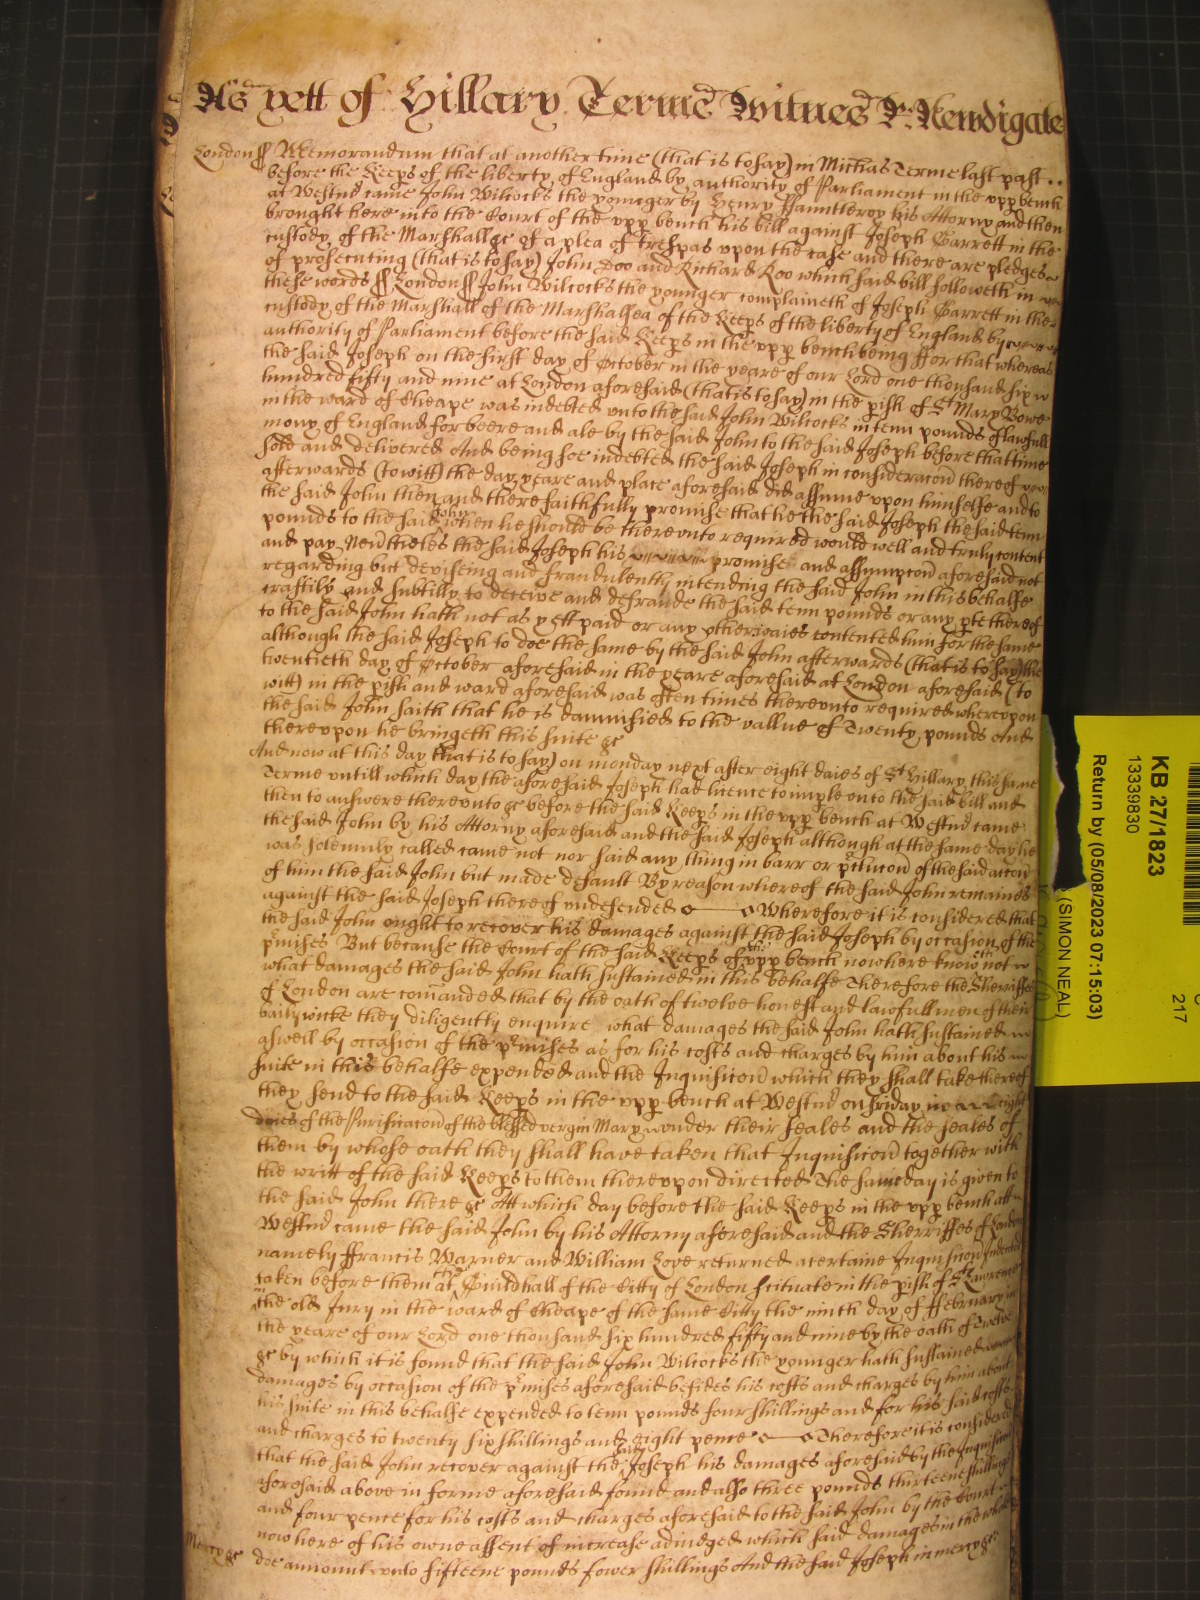 As yett of Hillary Terme Witnes R: Newdigate
London ss Memorandum that at another time (that is to say) in Michas Terme last past
before the Keeps of the liberty of England by authority of Parliament in the upp bench
at Westmr came John Wilcocks the younger by Henry Fauntleroy his Attorny and then
brought here into the Court of the upp bench his bill against Joseph Garrett in the
custody of the Marshall &c of a plea of trespas upon the case and there are pledges
of prosecuting (that is to say) John Doo and Richard Roo which said bill followeth in
these words ss London ss John Wilcocks the younger complaineth of Joseph Garrett in the
custody of the Marshall of the Marshalsea of the Keeps of the liberty of England by
authority of Parliament before the said Keeps in the upp bench being ffor that whereas
the said Joseph on the first day of October in the yeare of our Lord one thousand six
hundred fifty and nine at London aforesaid (that is to say) in the pish of St Mary Bowe
in the ward of Cheape was indebted unto the said John Wilcocks in tenn pounds of lawfull
mony of England for beere and ale by the said John to the said Joseph before that time
sold and delivered And being soe indebted the said Joseph in consideracon thereof
afterwards (to witt) the day yeare and place aforesaid did assume upon himselfe and to
the said John then and there faithfully promise that he the said Joseph the said tenn
pounds to the said John when he should be thereunto required would well and truly content
and pay Neverthelesse the said Joseph his promise and assumpcon aforesaid not
regarding but deviseing and fraudulently intending the said John in this behalfe
craftily and subtilly to deceive and defraude the said tenn pounds or any pte thereof
to the said John hath not as yett paid or any otherwaies contented him for the same
although the said Joseph to doe the same by the said John afterwards (that is to say) the
twentieth day of October aforesaid in the yeare aforesaid at London aforesaid (to
witt) in the pish and ward aforesaid was often times thereunto required whereupon
the said John saith that he is damnified to the vallue of Twenty pounds And
thereupon he bringeth this suite &c
And now at this day (that is to say) on monday next after eight daies of St Hillary this same
Terme untill which day the aforesaid Joseph had licence to imple onto the said bill and
then to answere thereunto &c before the said Keeps in the upp bench at Westmr came
the said John by his Attorny aforesaid and the said Joseph although at the same day he
was solemnly called came not nor said any thing in barr or pclucon of the said accon
of him the said John but made default By reason whereof the said John remaines
against the said Joseph thereof undefended Wherefore it is considered that
the said John ought to recover his damages against the said Joseph by occasion of the
pmises But because the Court of the said Keeps of the upp bench now here knoweth not
what damages the said John hath sustained in this behalfe Therefore the Sherriffes
of London are comanded that by the oath of twelve honest and lawfull men of their
bailywicke they diligently enquire what damages the said John hath sustained
aswell by occasion of the pmises as for his costs and charges by him about his
suite in this behalfe expended and the Inquisicon which they shall take thereof
they send to the said Keeps in the upp bench at Westmr on Friday in eight
daies of the Purificacon of the blessed vergin Mary under their seales and the seales of
them by whose oath they shall have taken that Inquisicon together with
the writt of the said Keeps to them thereupon directed The same day is given to
the said John there &c Att which day before the said Keeps in the upp bench att
Westmr came the said John by his Attorny aforesaid and the Sherriffes of London
namely ffrancis Warner and William Love returned a certaine Inquisicon Indented
taken before them at the Guildhall of the Citty of London scituate in the pish of St Lawrence
in the old Jury in the ward of Cheape of the same Citty the ninth day of ffebruary in
the yeare of our Lord one thousand six hundred fifty and nine by the oath of Twelve
&c by which it is found that the said John Wilcocks the younger hath sustained
damages by occasion of the pmises aforesaid besides his costs and charges by him about
his suite in this behalfe expended to tenn pounds four shillings and for his said costs
and charges to twenty six shillings and eight pence Therefore it is considered
that the said John recover against the said Joseph his damages aforesaid by the Inquisicon
aforesaid above in forme aforesaid found and also three pounds thirteene shillings
and four pence for his costs and charges aforesaid to the said John by the Court
now here of his owne assent of increase adiudged which said damages in the whole
Mercy &c doe amount unto fifteene pounds fower shillings And the said Joseph in mercy &c
KB 27/1823
13339830
Return by (05/08/2023 07:15:03)
(SIMON NEAL)
217